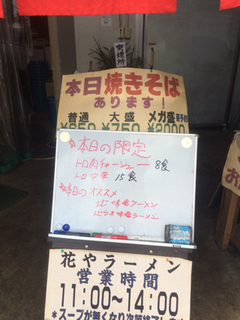 喫煙所
本日焼きそば
あります!
普通 大盛 メガ盛
¥650 ¥750 ¥2000
本日の限定
トロ肉チャーシュー 8食
15食
本日のオススメ
味噌ラーメン
味噌ラーメン
花やラーメン
営業時間
11:00~14:00
*スープが無くなり次第終了